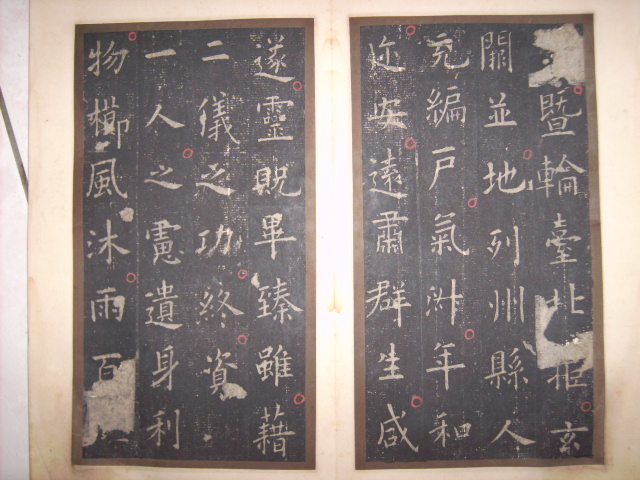 暨輪臺北拒玄
闕並地列州縣人
充編戶氣淑年和
迩安遠肅群生咸
遂靈貺畢臻雖藉
二儀之功終資
一人之慮遺身利
物櫛風沐雨百